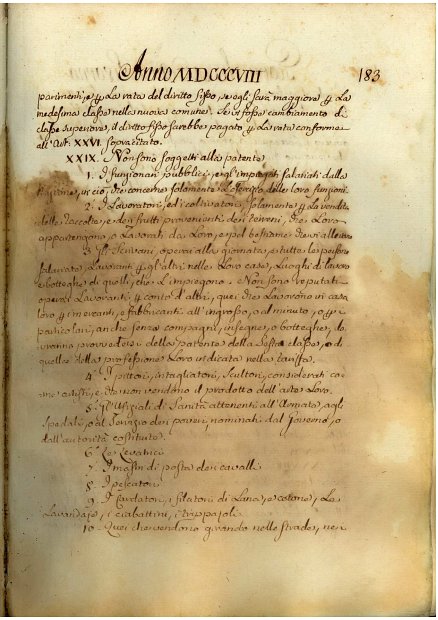 Anno MDCCCVIII 183
partimenti, e p La rata del diritto fisso, se egli sarà maggiore p La
medesima classe nella nuova comune. Se vi fosse cambiamento di
classe superiore, il diritto fisso sarebbe pagato p La rata conforme
all'Art. XXVI. sopracitato.
XXIX. Non sono soggetti alla patente
1. I funzionari pubblici, e gl'impiegati salariati dalla
in ciò, che concerne solamente L'esercizio delle loro funzioni
2. I Lavoratori, ed i coltivatori solamente p La vendita
delle Raccolte, e dei frutti provenienti dei terreni, che Loro
appartengono, o Lavorati da Loro, e pel bestiame che vi allevano
3. Gli Scrivani, operai alla giornata, e tutte le persone
salariate, Lavoranti p gl'altri nelle Loro case, Luoghi di lavoro
e botteghe di quelli, che L'impiegono. Non sono reputati
operai Lavoranti p conto d'altri, quei che Lavorono in casa
loro p i mercanti, e fabbricanti all'ingrosso, o al minuto, o p
particolari, anche senza compagni, insegne, o botteghe, do
vranno provvedersi della patente della Sesta classe, o di
quella della professione Loro indicata nella tariffa.
4. I pittori, intagliatori, Scultori, considerati co
me artisti, e che non vendono il prodotto dell'arte Loro.
5. Gl'Ufiziali di Sanità attenenti all'Armata, agli
Spedali, o al Servizio dei poveri, nominati dal Governo, o
dall'autorità costituite.
6. Le Levatrici
7. I mastri di posta dei cavalli
8. I pescatori
9. I Cardatori, i filatori di Lana, e cotone, La
Lavandaje, i ciabattini, i trippajoli
10. Quei che vendono girando nelle strade, nei